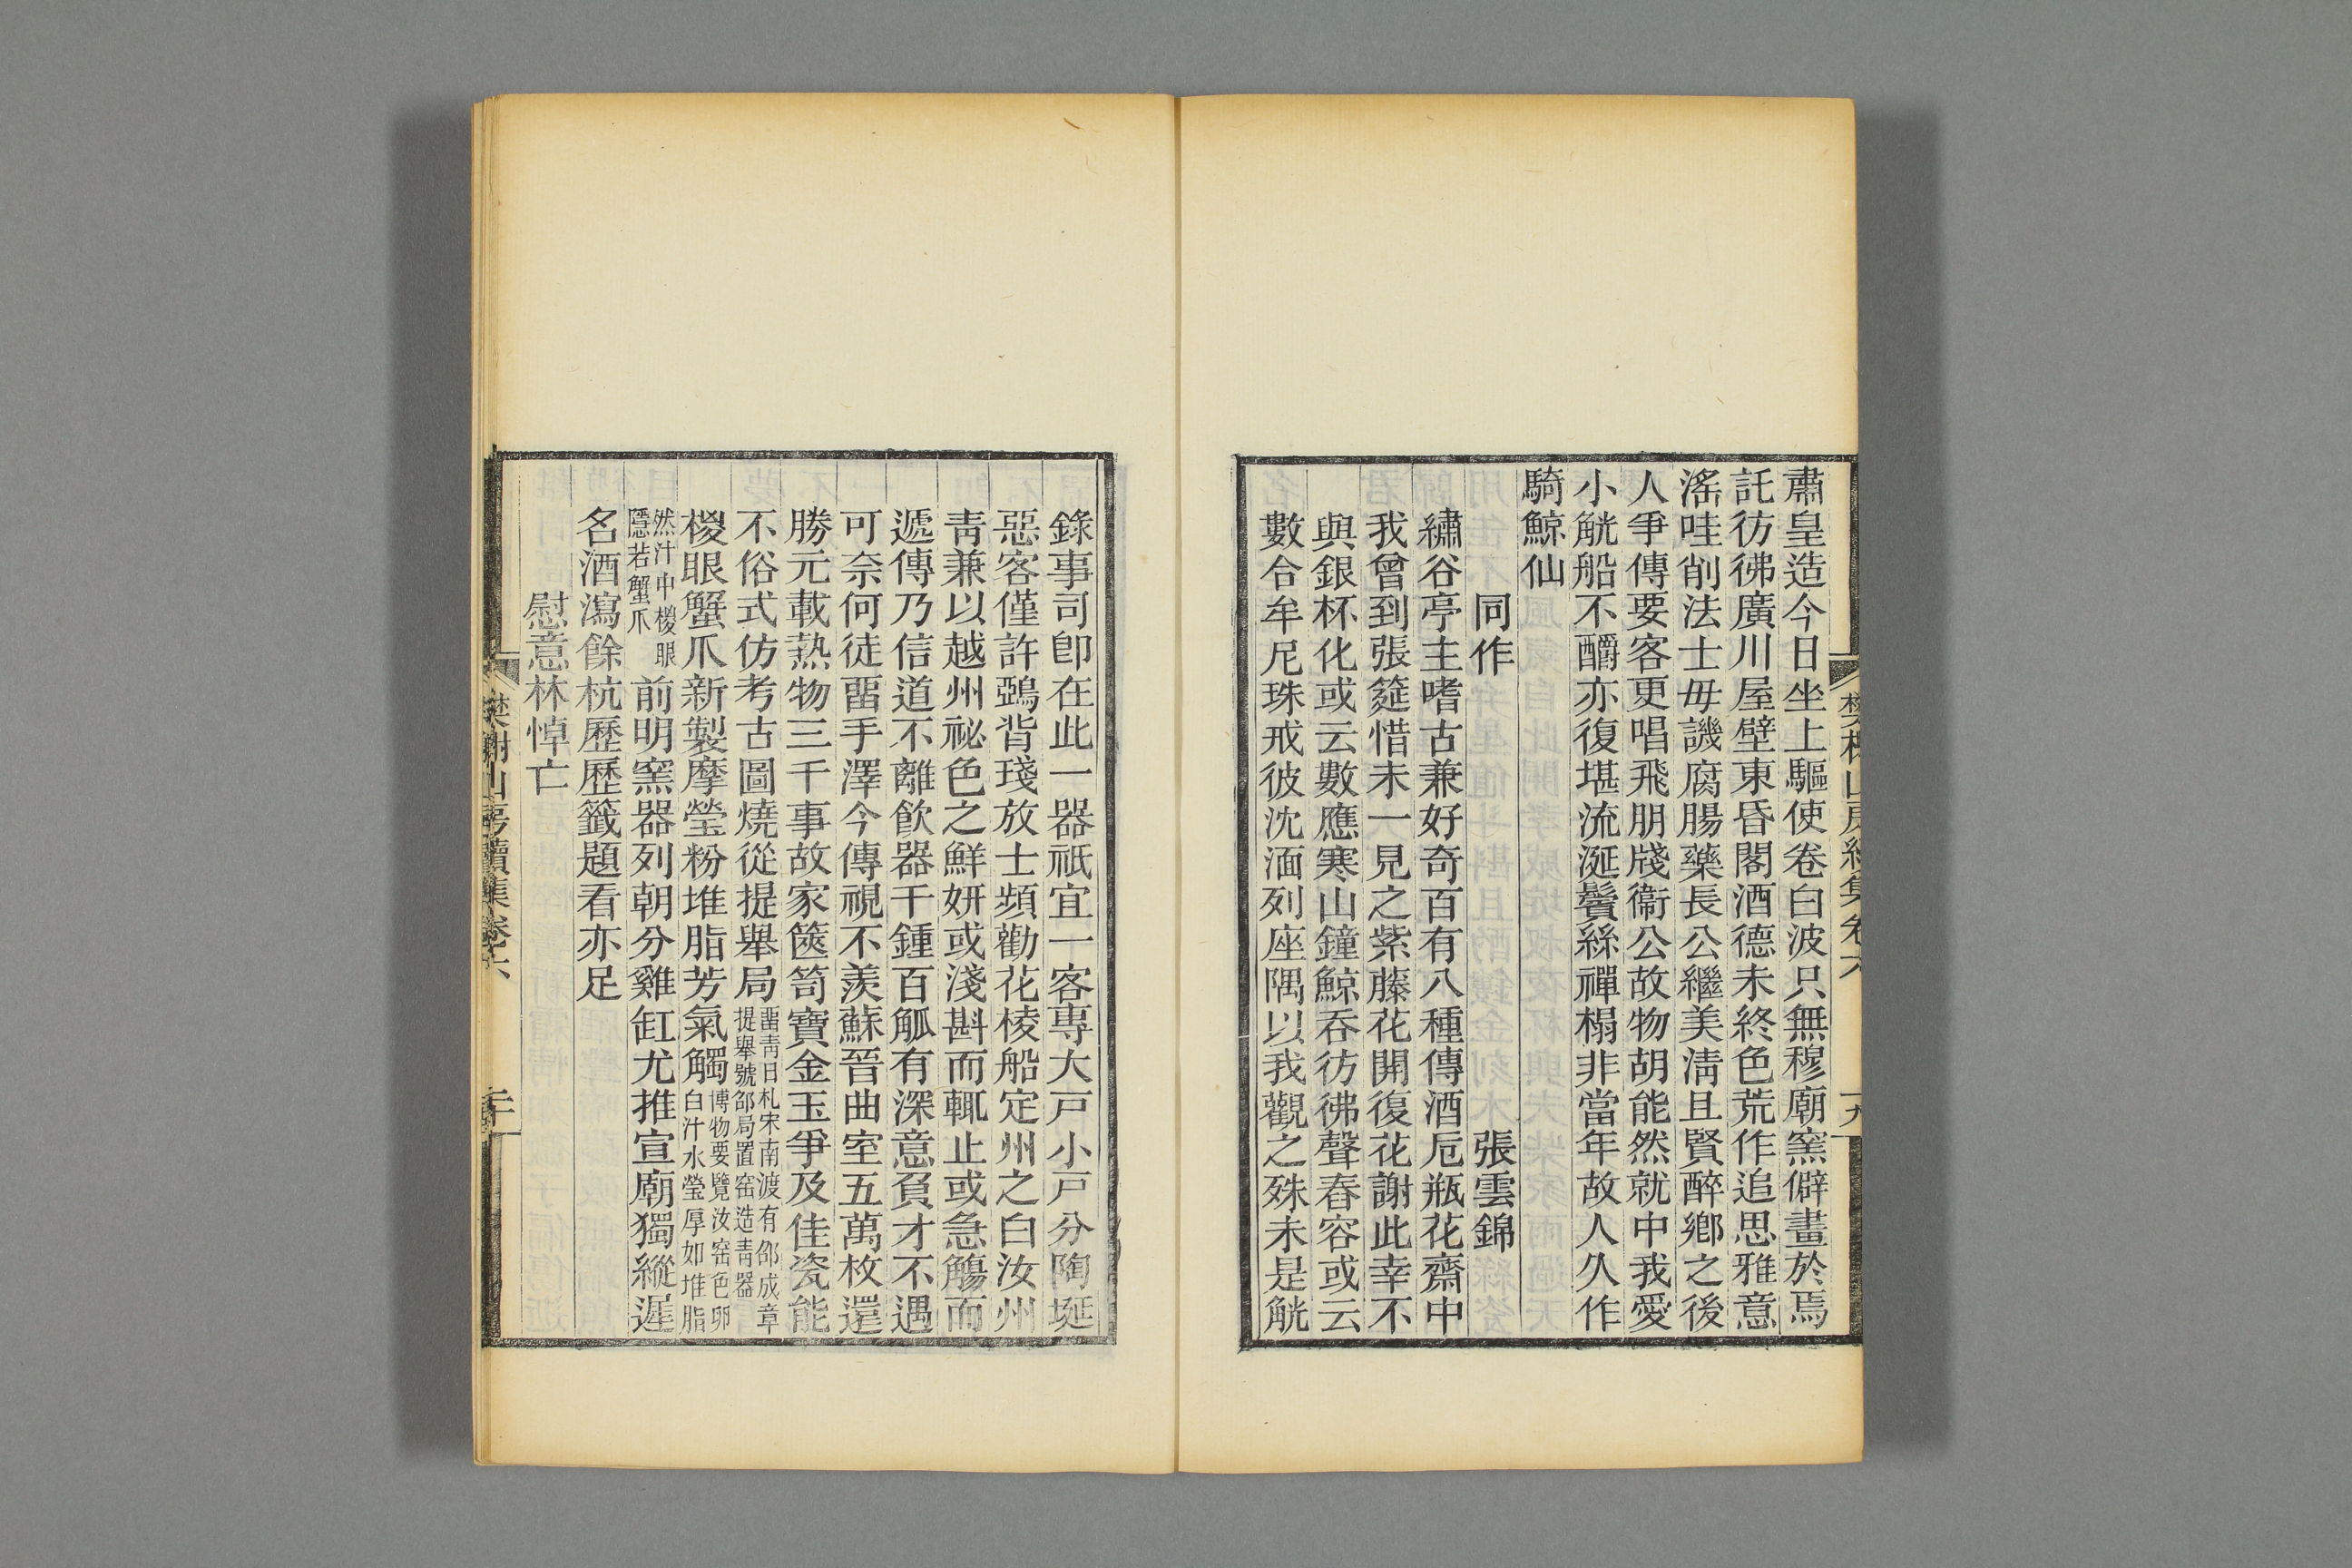 肅皇造今日坐上驅使卷白波只無穆廟窯僻畫於焉
託彷彿廣川屋壁東昏閣酒德未終色荒作追思雅意
滛哇削法士毋譏腐腸藥長公繼美淸且賢醉鄕之後
人爭傳要客更唱飛朋牋衞公故物胡能然就中我愛
小觥船不釂亦復堪流涎鬢絲禪榻非當年故人久作
騎鯨仙
同作　張雲錦
繡谷亭主嗜古兼好奇百有八種傳酒巵瓶花齋中
我曾到張筵惜未一見之紫藤花開復花謝此幸不
與銀杯化或云數應寒山鐘鯨吞彷彿聲舂容或云
數合牟尼珠戒彼沈湎列座隅以我觀之殊未是觥
樊榭山房續集卷六　十九
錄事司卽在此一器祇宜一客專大戸小戸分陶埏
惡客僅許鵶背琖放士頻勸花棱船定州之白汝州
靑兼以越州祕色之鮮妍或淺斟而輒止或急觴而
遞傳乃信道不離飮器千鍾百觚有深意負才不遇
可奈何徒畱手澤今傳視不羨蘇晉曲室五萬枚還
勝元載熱物三千事故家篋笥寶金玉爭及佳瓷能
不俗式仿考古圖燒從提舉局畱靑日札宋南渡有邵成章提舉號邵局置窑造靑器
椶眼蟹爪新製摩瑩粉堆脂芳氣觸博物要覽汝窑色卵白汁水瑩厚如堆脂
然汁中椶眼隱若蟹爪前明窯器列朝分雞缸尤推宣廟獨縱遲
名酒瀉餘杭歷歷籤題看亦足
慰意林悼亡
樊榭山房續集卷六　二十